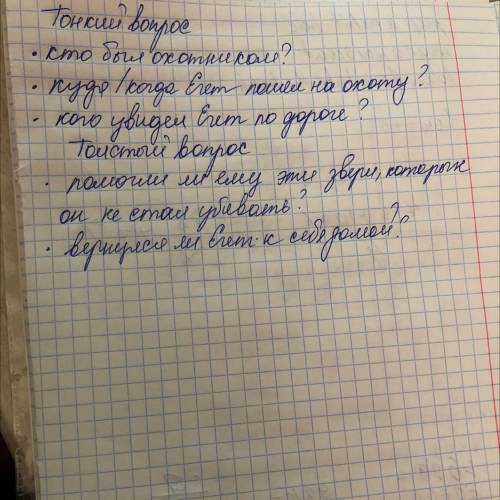 Тонкий вопрос
• кто был охотником?
• куда/когда Егет пошел на охоту?
• кого увидел Егет по дороге?
Толстый вопрос
• помогли ли ему эти звери, которых
он не стал убивать?
• вернулся ли Егет к себе домой?